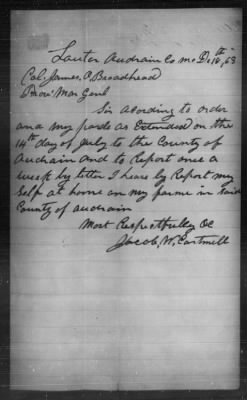 Lauter Audrain Co mo Dc 18th, 63
Col. James, O, Broadhead
Prov Mar Genl
Sir acording to order
and my parole as Extended on the
14th day of July to the County of
Audrain and to Report once a
week by letter I heare by Report my
Self at home on my farme in said
County of audrain
Most Respectfully &c
Jacob, W, Cartmell